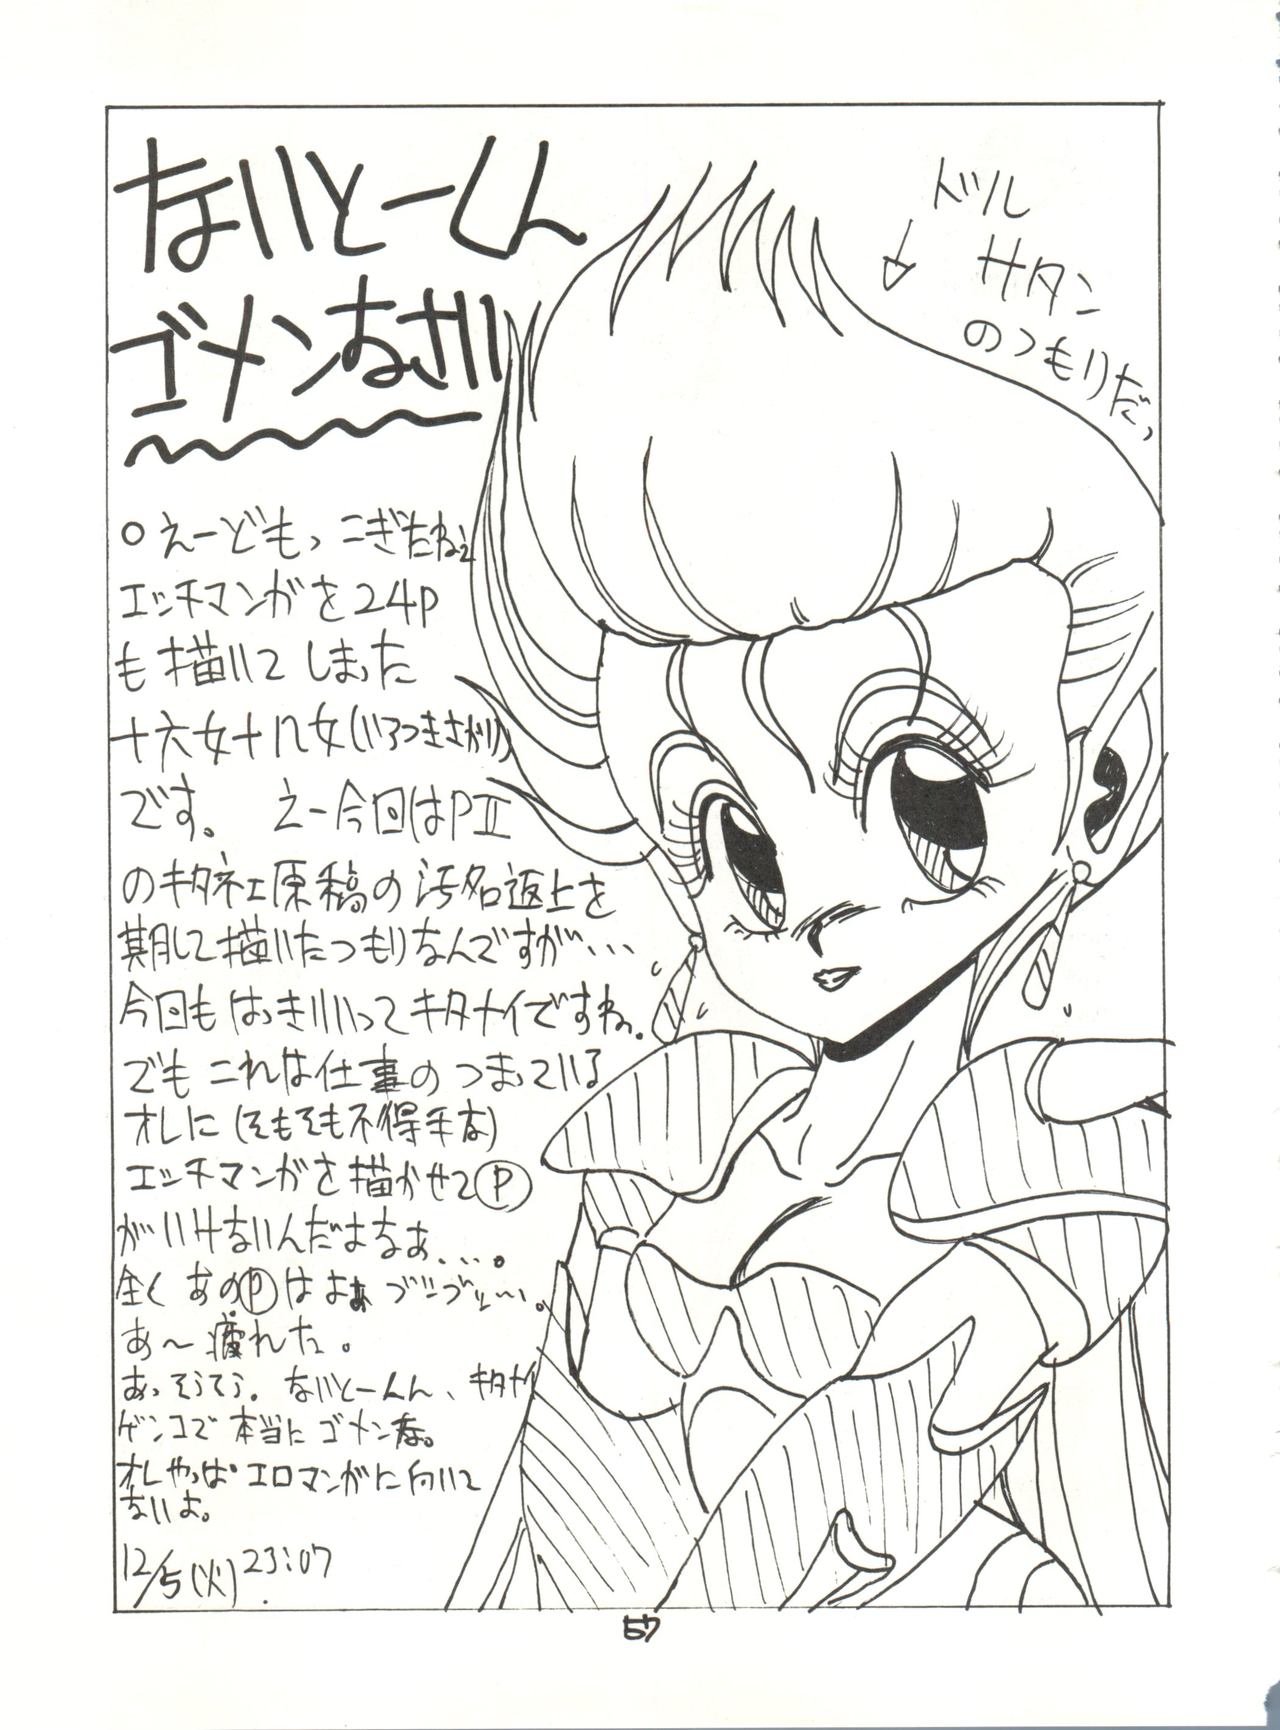 ないとーくん
ゴメンなさい
ドツル
サタン
のつもりだっ
○えーどもっ こぎたねぇ
エッチマンガを24P
も描いてしまった
十六女十八女(いろつきさがり)
です。 えー今回はPⅡ
のキタネェ原稿の汚名返上を
期して描いたつもりなんですが…
今回もはっきりいってキタナイですねっ。
でもこれは仕事のつまっている
オレに(そもそも不得手な)
エッチマンガを描かせてⓅ
がいけないんだよなぁ…。
全くあのⓅはよぉ ブツブツ…。
あ〜疲れた。
あっそうそう。ないとーくん、キタナイ
ゲンコで本当にゴメンな。
オレやっぱエロマンガに向いて
ないよ。
12/5(火)23:07
57